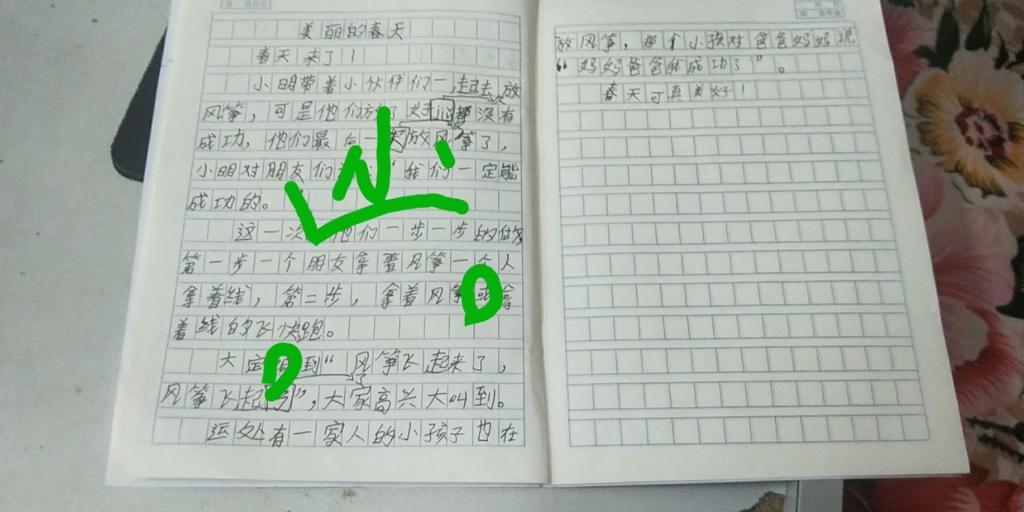 美丽的春天
春天来了！
小明带着小伙伴们一起过去放
风筝，可是他们放了 都没有
成功，他们最后一 放风筝了，
小明对朋友们 ：“我们一定能
成功的。
这一次 他们一步一步的做
第一步一个朋友拿着风筝一个人
拿着线，第二步，拿着风筝 拿
着线的飞快跑。
大 到“风筝飞起来了，
风筝飞起 ”，大家高兴大叫到。
远处有一家人的小孩子也在
放风筝，那个小孩对爸爸妈妈说
“妈妈爸爸我成功了”。
春天可真美好！